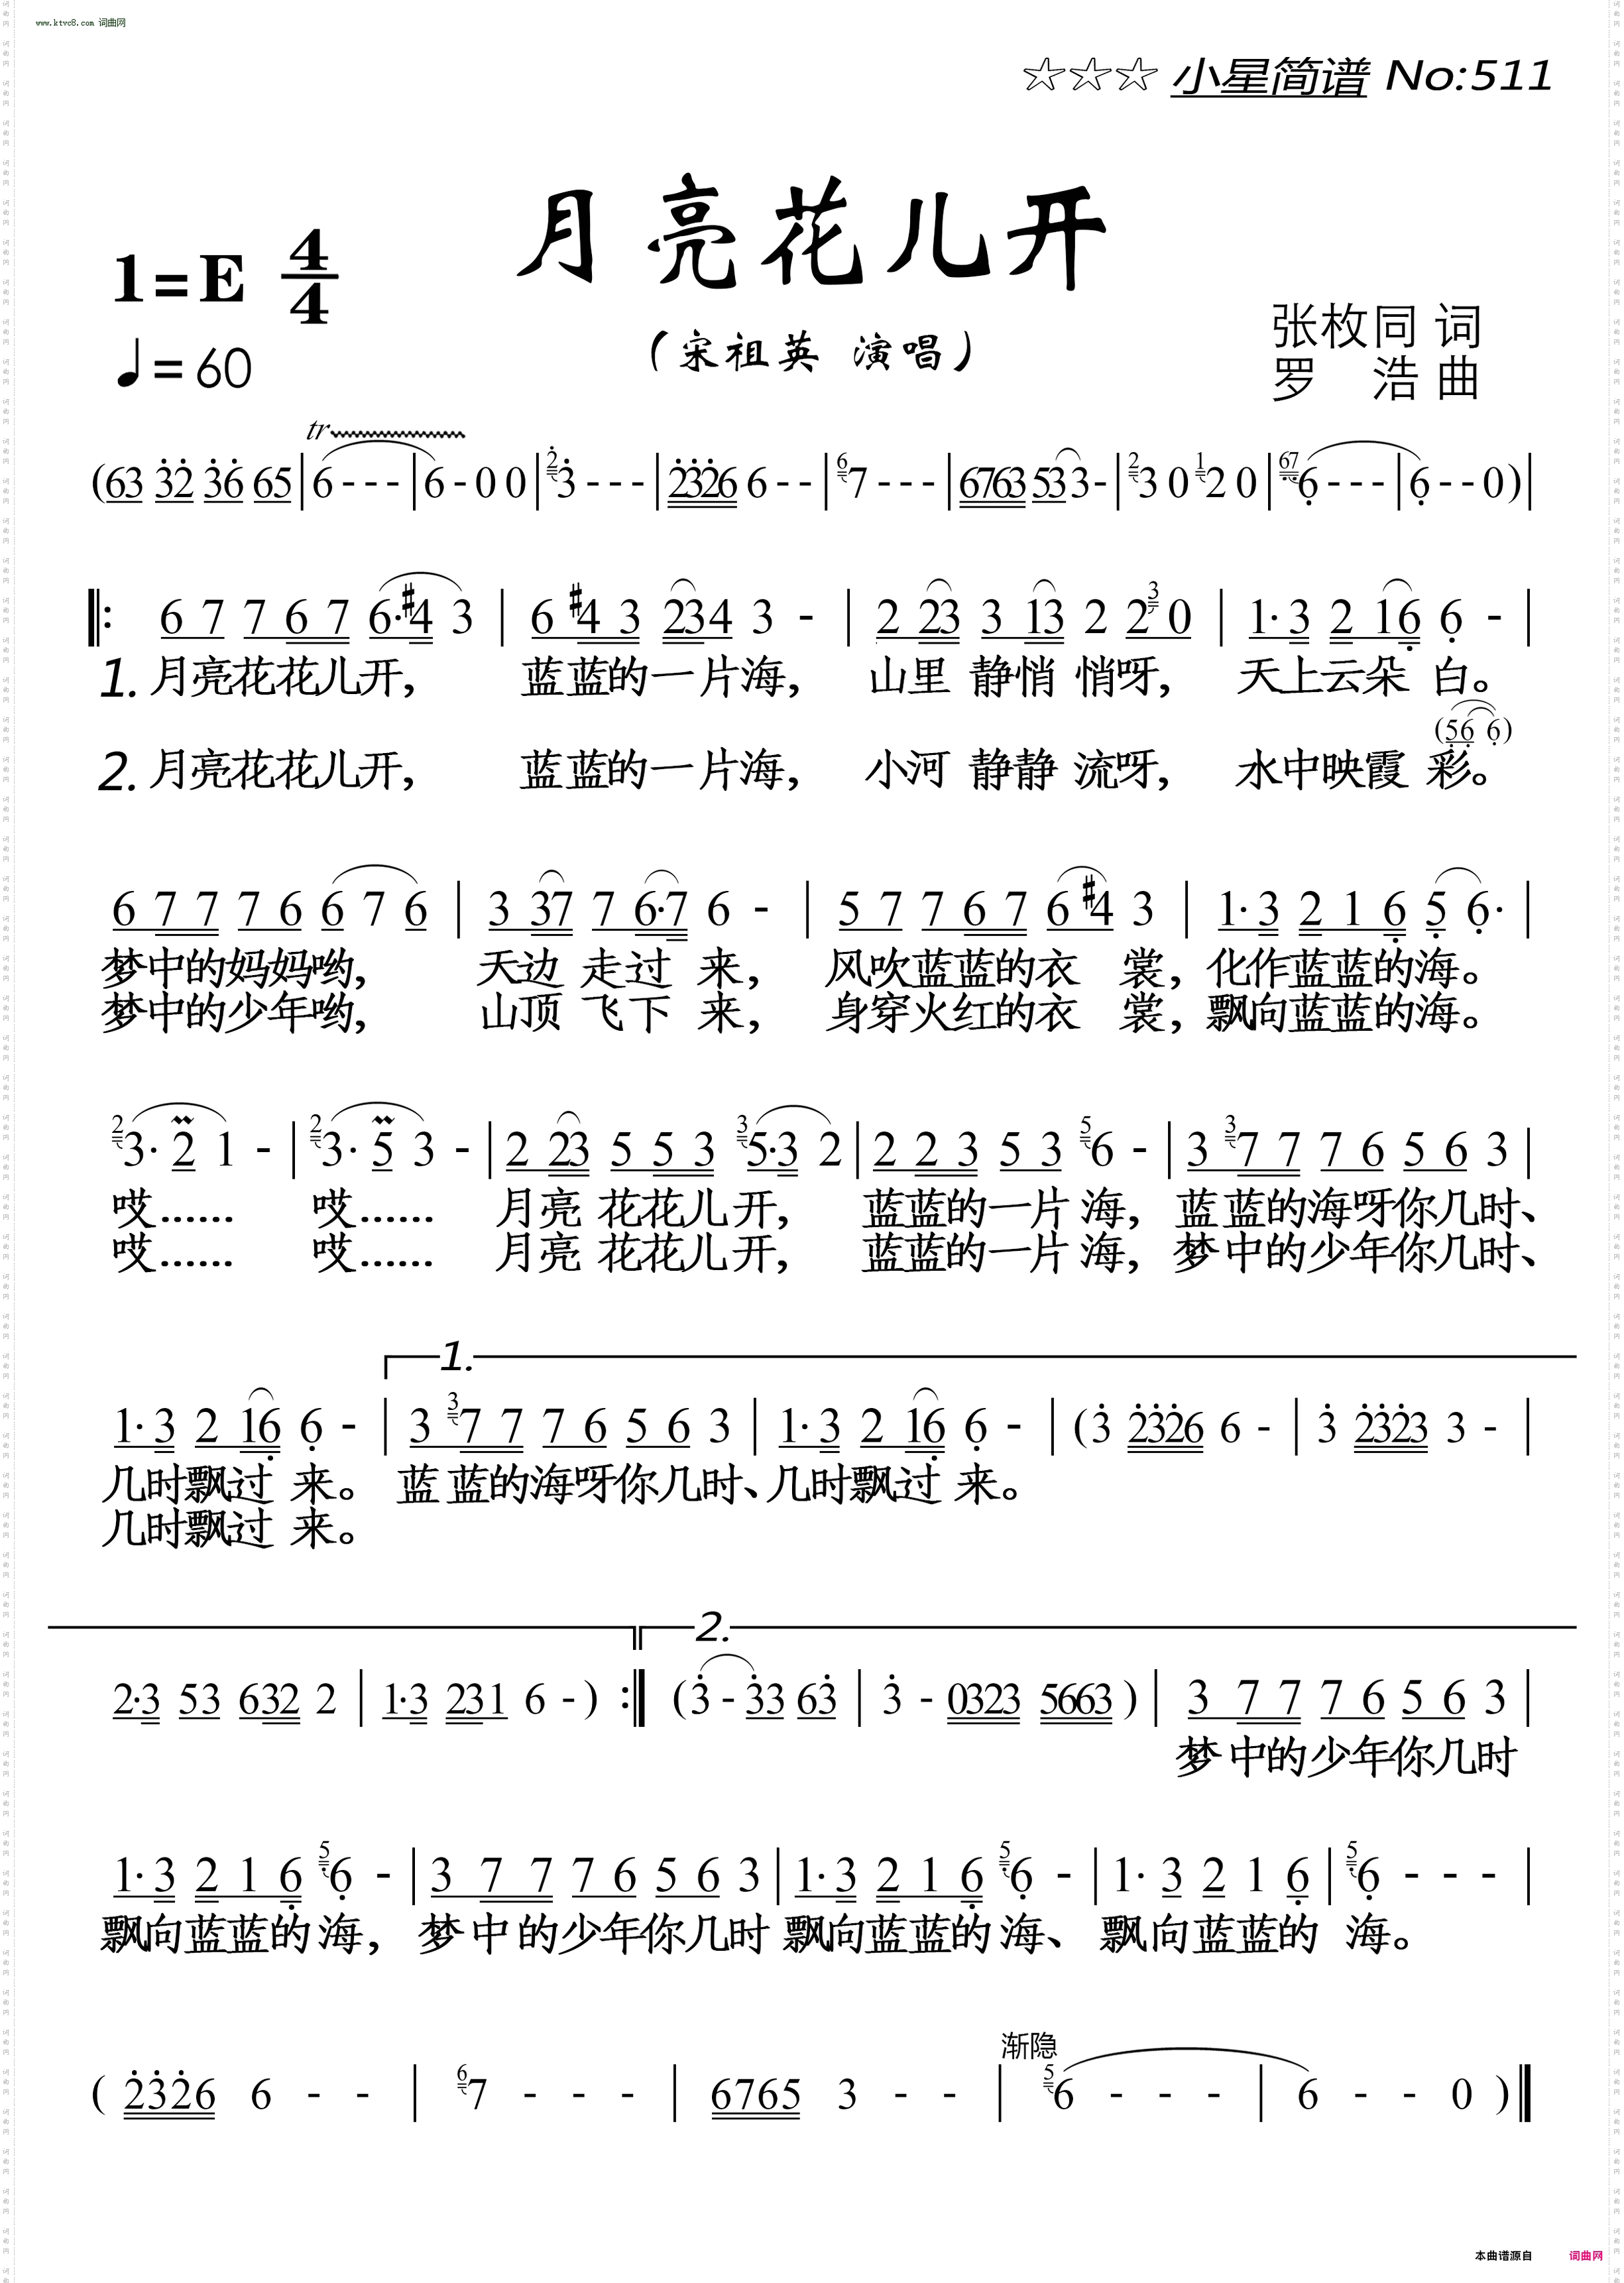 www.ktvc8.com 词曲网
☆☆☆ 小星简谱 No:511
月亮花儿开
1=E 4/4
♩=60
（宋祖英 演唱）
张枚同 词
罗 浩 曲
tr
(63 32 36 65 | 6 - - - | 6 - 0 0 | 2 3 - - - | 2326 6 - - | 6 7 - - - | 6763 533 - | 2 3 0 1 2 0 | 67 6 - - - | 6 - - 0) |
|: 6 7 7 6 7 6· #4 3 | 6 #4 3 234 3 - | 2 23 3 13 2 2 3 0 | 1· 3 2 16 6 - |
1. 月亮花花儿开， 蓝蓝的一片海， 山里 静悄 悄呀， 天上云朵 白。
(56 6)
2. 月亮花花儿开， 蓝蓝的一片海， 小河 静静 流呀， 水中映霞 彩。
6 7 7 7 6 6 7 6 | 3 37 7 6·7 6 - | 5 7 7 6 7 6 #4 3 | 1· 3 2 1 6 5 6· |
梦中的妈妈哟， 天边 走过 来， 风吹蓝蓝的衣 裳，化作蓝蓝的海。
梦中的少年哟， 山顶 飞下 来， 身穿火红的衣 裳，飘向蓝蓝的海。
2 3· 2 1 - | 2 3· 5 3 - | 2 23 5 5 3 3 5·3 2 | 2 2 3 5 3 5 6 - | 3 3 7 7 7 6 5 6 3 |
哎…… 哎…… 月亮 花花儿开， 蓝蓝的一片 海，蓝 蓝的海呀你几时、
哎…… 哎…… 月亮 花花儿开， 蓝蓝的一片 海，梦 中的少年你几时、
1.
1· 3 2 16 6 - | 3 3 7 7 7 6 5 6 3 | 1· 3 2 16 6 - | (3 2326 6 - | 3 2323 3 - |
几时飘过 来。 蓝 蓝的海呀你几时、几时飘过 来。
几时飘过 来。
2.
2·3 53 632 2 | 1·3 231 6 -) :| (3 - 33 63 | 3 - 0323 5663) | 3 7 7 7 6 5 6 3 |
梦 中的少年你几时
1· 3 2 1 6 5 6 - | 3 7 7 7 6 5 6 3 | 1· 3 2 1 6 5 6 - | 1· 3 2 1 6 | 5 6 - - - |
飘向蓝蓝的 海， 梦 中 的少年你几时 飘向蓝蓝的 海、 飘 向 蓝蓝的 海。
渐隐
( 2326 6 - - | 6 7 - - - | 6765 3 - - | 5 6 - - - | 6 - - 0 )
本曲谱源自 词曲网